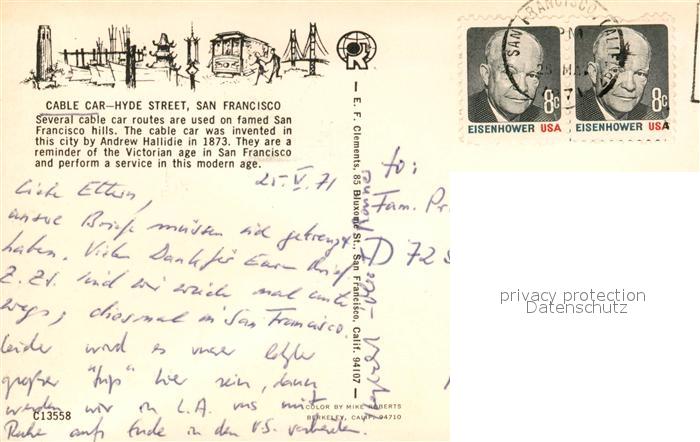 CABLE CAR—HYDE STREET, SAN FRANCISCO
Several cable car routes are used on famed San
Francisco hills. The cable car was invented in
this city by Andrew Hallidie in 1873. They are a
reminder of the Victorian age in San Francisco
and perform a service in this modern age.
25.V.71
Liebe Eltern,
unsre Briefe müssen sich gekreuzt
haben. Vielen Dank für Euren Brief.
Z.Zt. sind wir wieder mal unter
wegs, diesmal in San Francisco.
Leider wird es unser letzter
großer "trip" hier sein, dann
werden wir in L.A. uns mit
Ruhe aufs Ende in den V.S. vorbereiten.
C13558
COLOR BY MIKE ROBERTS
BERKELEY, CALIF. 94710
E. F. Clements, 85 Bluxome St., San Francisco, Calif. 94107
to:
Fam. Pr
D 72
SAN FRANCISCO, CALIF
PM
25 MAY
71
8c
EISENHOWER USA
8c
EISENHOWER USA
privacy protection
Datenschutz